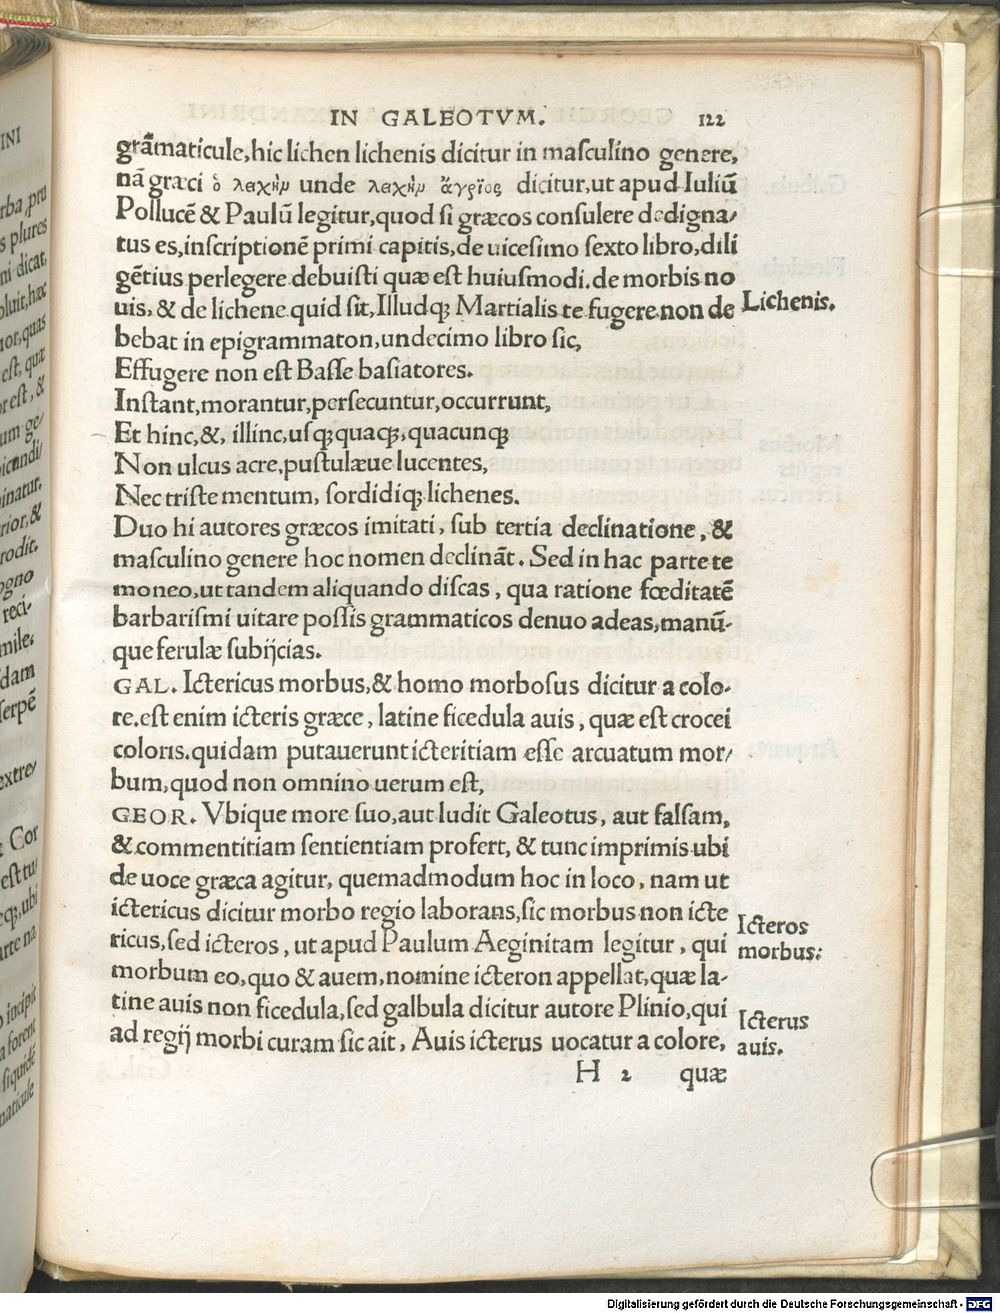 IN GALEOTVM. 122
grãmaticule,hic lichen lichenis dicitur in masculino genere,
nã græci ὁ λειχὴν unde λειχὴν ἄγριος dicitur,ut apud Iuliũ
Pollucẽ & Paulũ legitur,quod si græcos consulere dedigna/
tus es,inscriptionẽ primi capitis,de uicesimo sexto libro,dili
gẽtius perlegere debuisti quæ est huiusmodi.de morbis no
uis,& de lichene quid sit,Illudq; Martialis te fugere non de
Lichenis.
bebat in epigrammaton,undecimo libro sic,
Effugere non est Basse basiatores.
Instant,morantur,persecuntur,occurrunt,
Et hinc,&, illinc,usq;quaq;,quacunq;
Non ulcus acre,pustulæue lucentes,
Nec triste mentum, sordidiq; lichenes.
Duo hi autores græcos imitati, sub tertia declinatione, &
masculino genere hoc nomen declinãt. Sed in hac parte te
moneo,ut tandem aliquando discas, qua ratione fœditatẽ
barbarismi uitare possis grammaticos denuo adeas,manũ-
que ferulæ subijcias.
GAL. Ictericus morbus,& homo morbosus dicitur a colo-
re.est enim icteris græce, latine ficedula auis, quæ est crocei
coloris.quidam putauerunt icteritiam esse arcuatum mor/
bum,quod non omnino uerum est,
GEOR. Vbique more suo,aut ludit Galeotus, aut falsam,
& commentitiam sentientiam profert, & tunc imprimis ubi
de uoce græca agitur, quemadmodum hoc in loco, nam ut
ictericus dicitur morbo regio laborans,sic morbus non icte
Icteros
ricus,sed icteros, ut apud Paulum Aeginitam legitur, qui
morbus:
morbum eo,quo & auem,nomine icteron appellat,quæ la-
tine auis non ficedula,sed galbula dicitur autore Plinio,qui
Icterus
ad regij morbi curam sic ait, Auis icterus uocatur a colore,
auis.
H 2 quæ
Digitalisierung gefördert durch die Deutsche Forschungsgemeinschaft - DFG